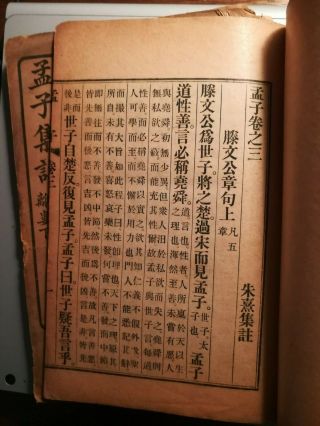 孟子卷之三
朱熹集註
滕文公章句上 凡五
章
滕文公爲世子將之楚過宋而見孟子 世子太
子也 孟子
道性善言必稱堯舜 道言也性者人所稟於天以生
之理也渾然至善未嘗有惡人
與堯舜初無少異但衆人汩於私欲而失之堯舜則
無私欲之蔽而能充其性爾故孟子與世子言每道
性善而必稱堯舜以實之欲其知仁義不假外求聖
人可學而至而不懈於用力也門人不能悉記其辭
而撮其大旨如此程子曰性卽理也天下之理原其
所自未有不善喜怒哀樂未發何嘗不善發而中節
卽無往而不善發不中節然後爲不善故凡言善惡
皆先善而後惡言吉凶皆先吉而後凶言是非皆先
是而
後非 世子自楚反復見孟子孟子曰世子疑吾言乎
孟子集註